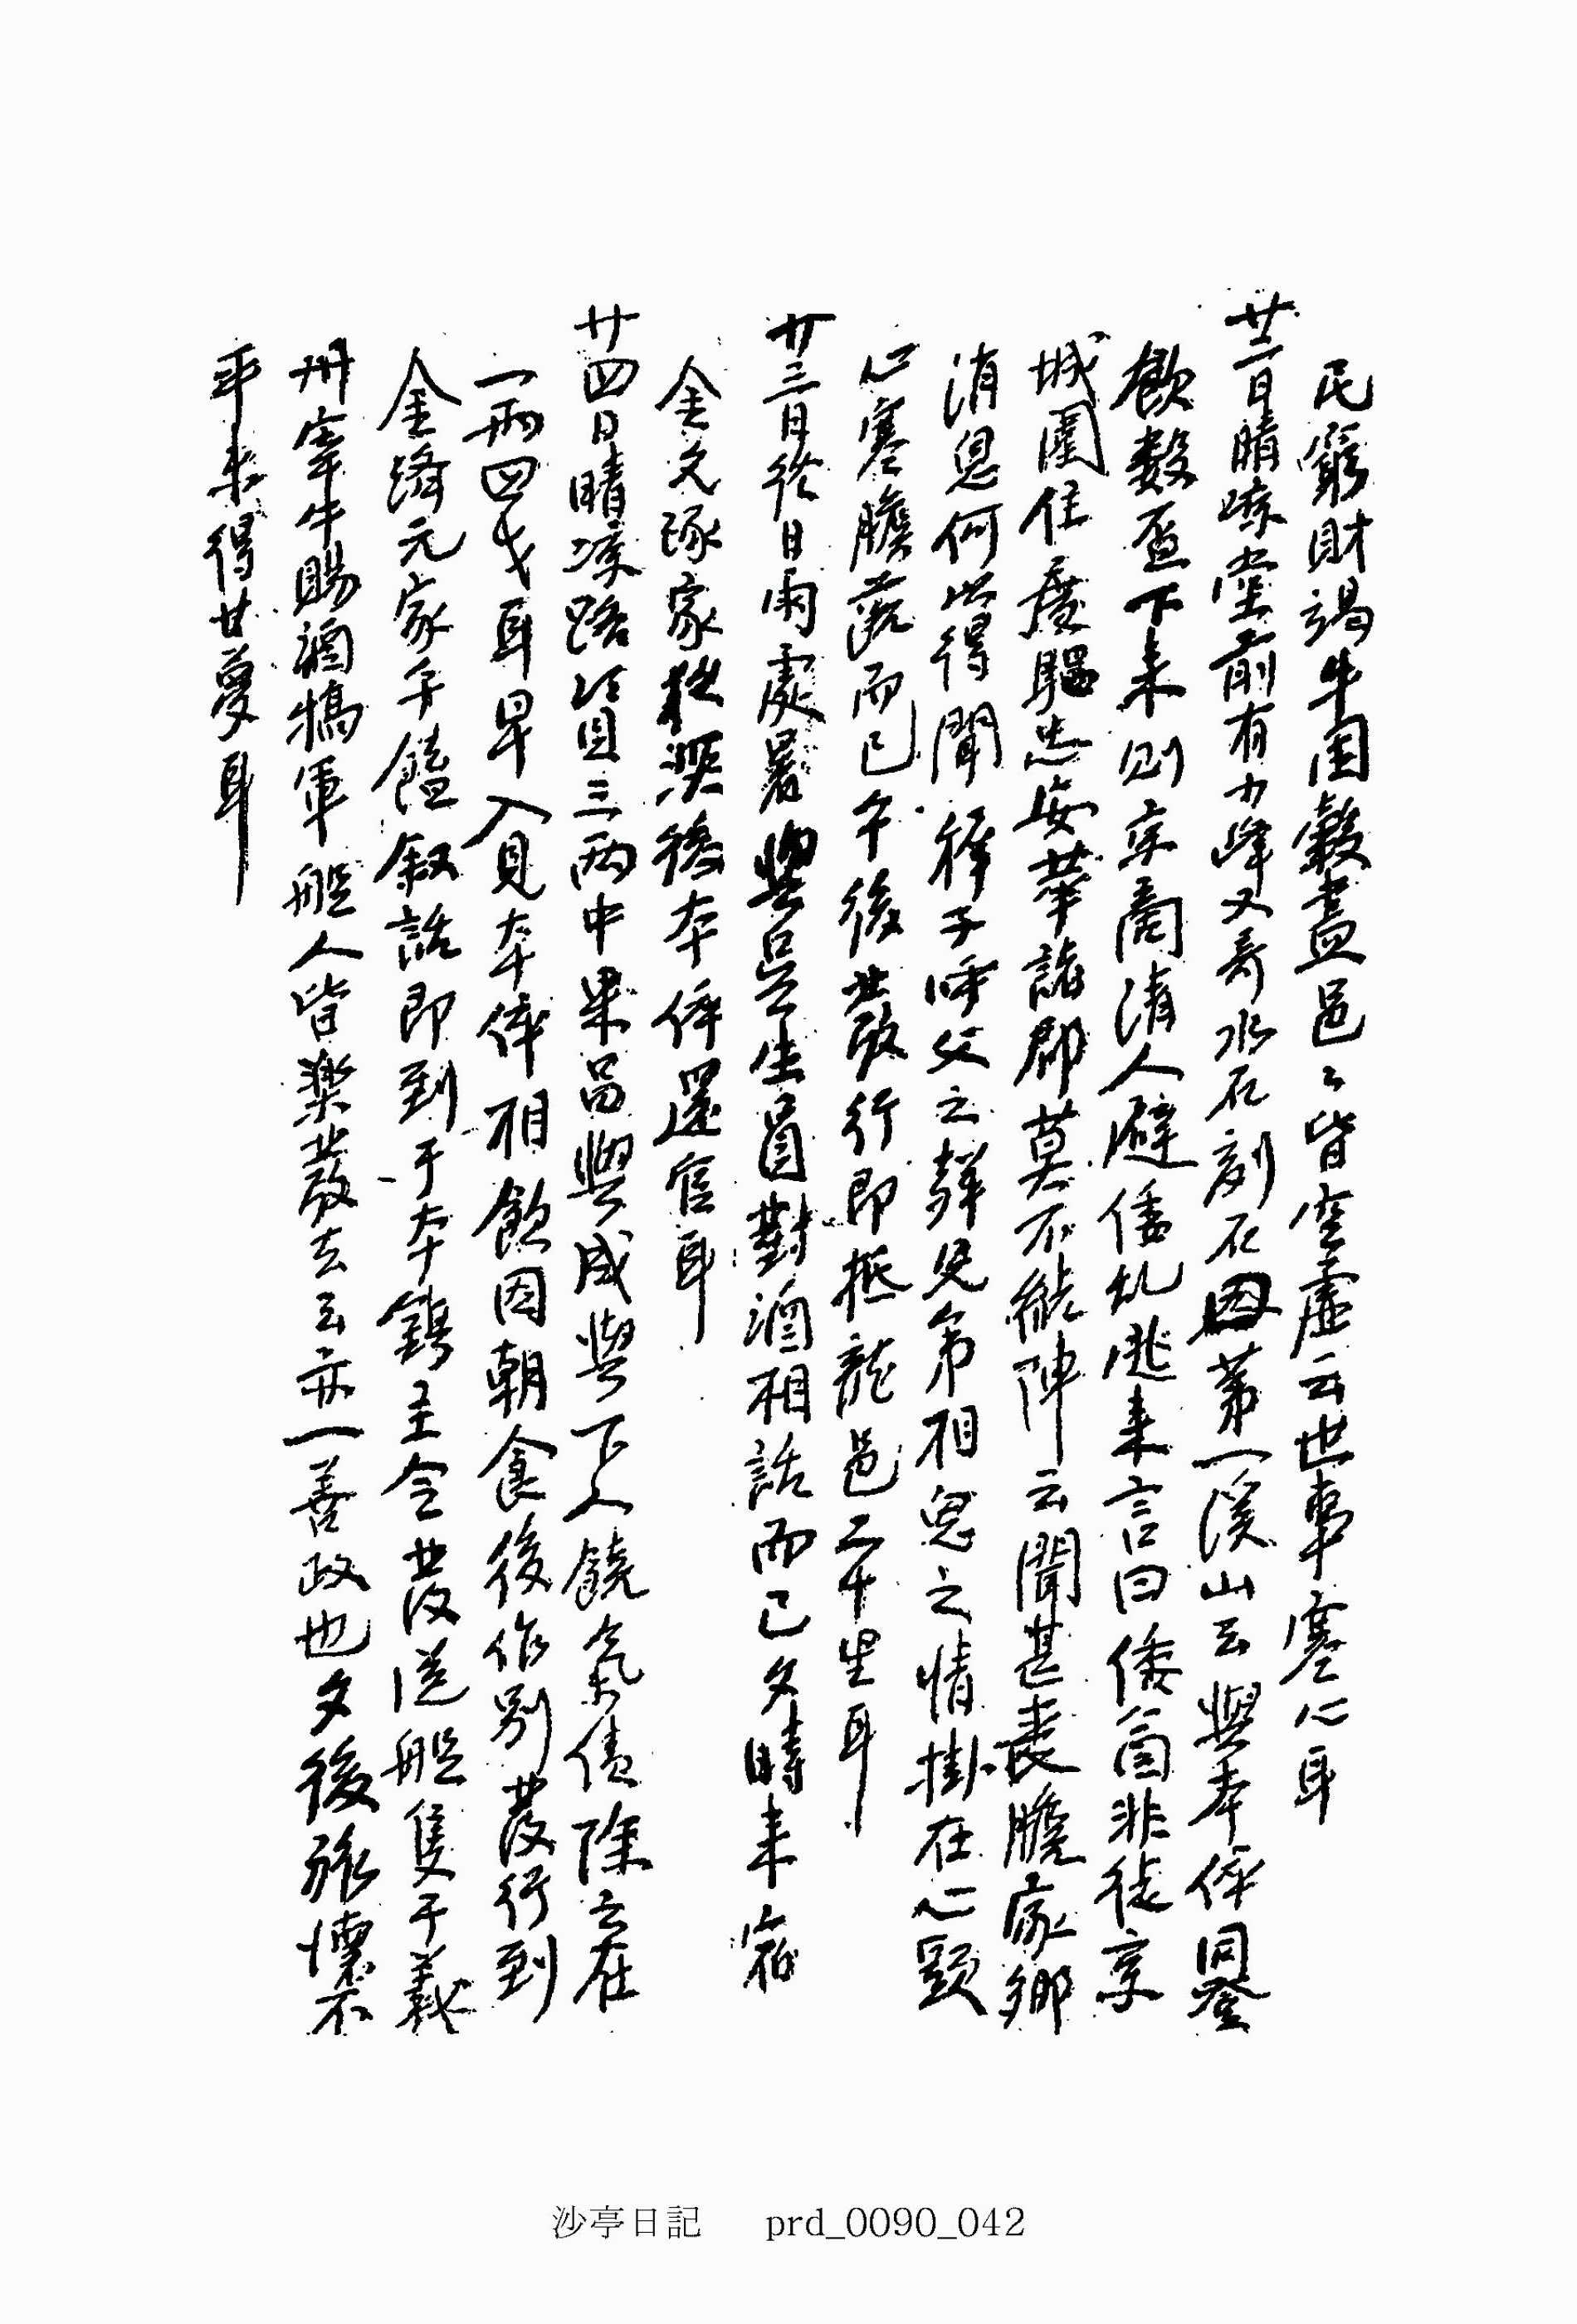 民窮財竭牛困穀盡邑々皆空虛云世事寒心耳
廿二日晴喨堂前有小峰又奇水石刻石因第一溪山云與本倅同登
飲數盃下来則京商淸人避倭乱逃来言曰倭酋非徒京
城圍住度驅忠安華諸郡莫不結陣云聞甚喪膽家鄉
消息何以得聞稚子呼父之聲兄弟相思之情掛在心頭
心寒膽落而已午後發行即抵龍邑二十里耳
廿三日終日雨處暑與吳生員對酒相話而已夕時来宿
金文琢家犹深後本倅還官耳
廿四日晴凉路資三兩中果品與咸與下人饒氣債除之在
一兩四戈耳早入見本倅相飲因朝食後作別發行到
金濟元家午饁叙話即到于本鎮主令發送船隻于義
州宰牛賜酒犒軍船人皆樂發去云亦一善政也夕後旅懷不
平未得甘夢耳
沙亭日記 prd_0090_042